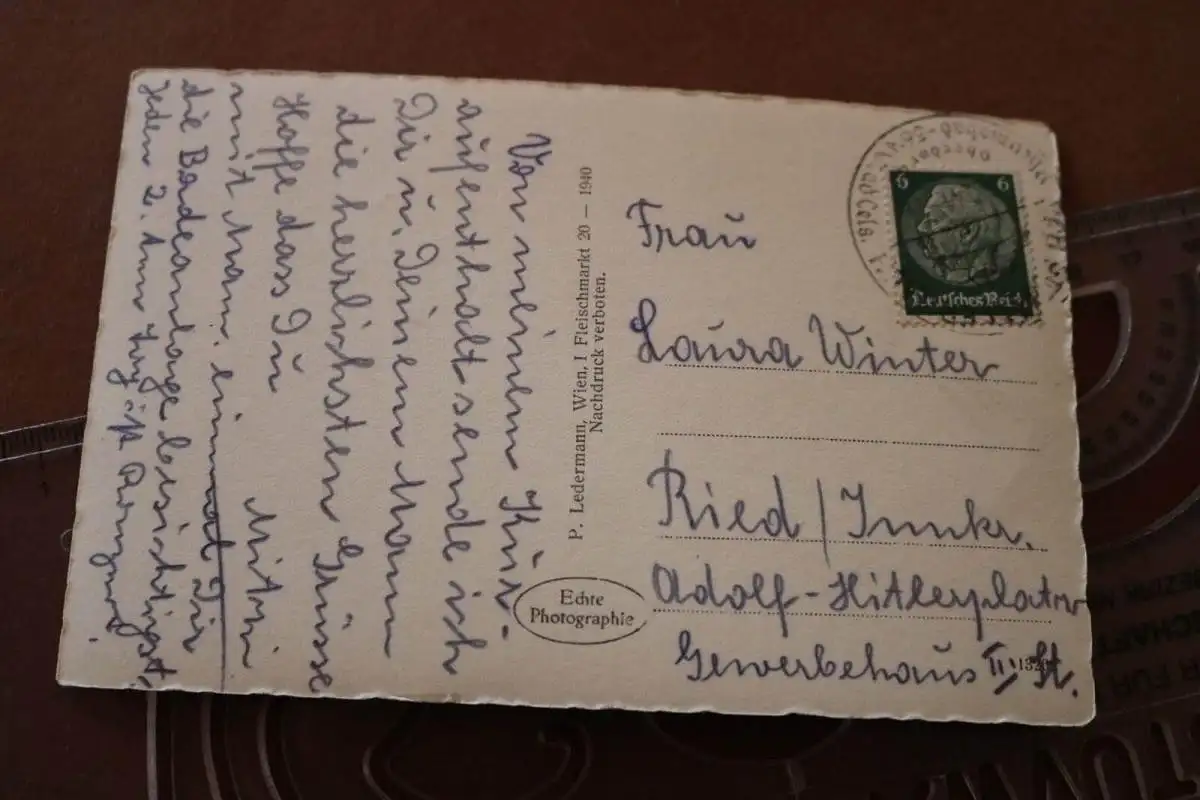 Von meinem Kür-
aufenthalt sende ich
Dir u. Deinem Mann
die herzlichsten Grüsse
Hoffe dass Du
Mitzi
mit Mann einmal Dir
die Badeanlage besichtigst,
jeden 2.
P. Ledermann, Wien, I Fleischmarkt 20 — 1940
Nachdruck verboten.
Echte
Photographie
6 6
Deutsches Reich
Frau
Laura Winter
Ried / Innkr.
Adolf-Hitlerplatz
Gewerbehaus II. St.